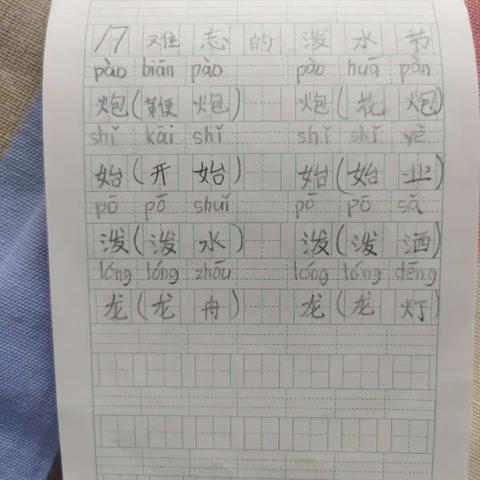 17 难忘的泼水节
pào biān pào pào huā pàn
炮(鞭炮) 炮(花炮)
shǐ kāi shǐ shǐ shǐ yè
始(开始) 始(始业)
pō pō shuǐ pō pō sǎ
泼(泼水) 泼(泼洒)
lóng lóng zhōu lóng lóng dēng
龙(龙舟) 龙(龙灯)